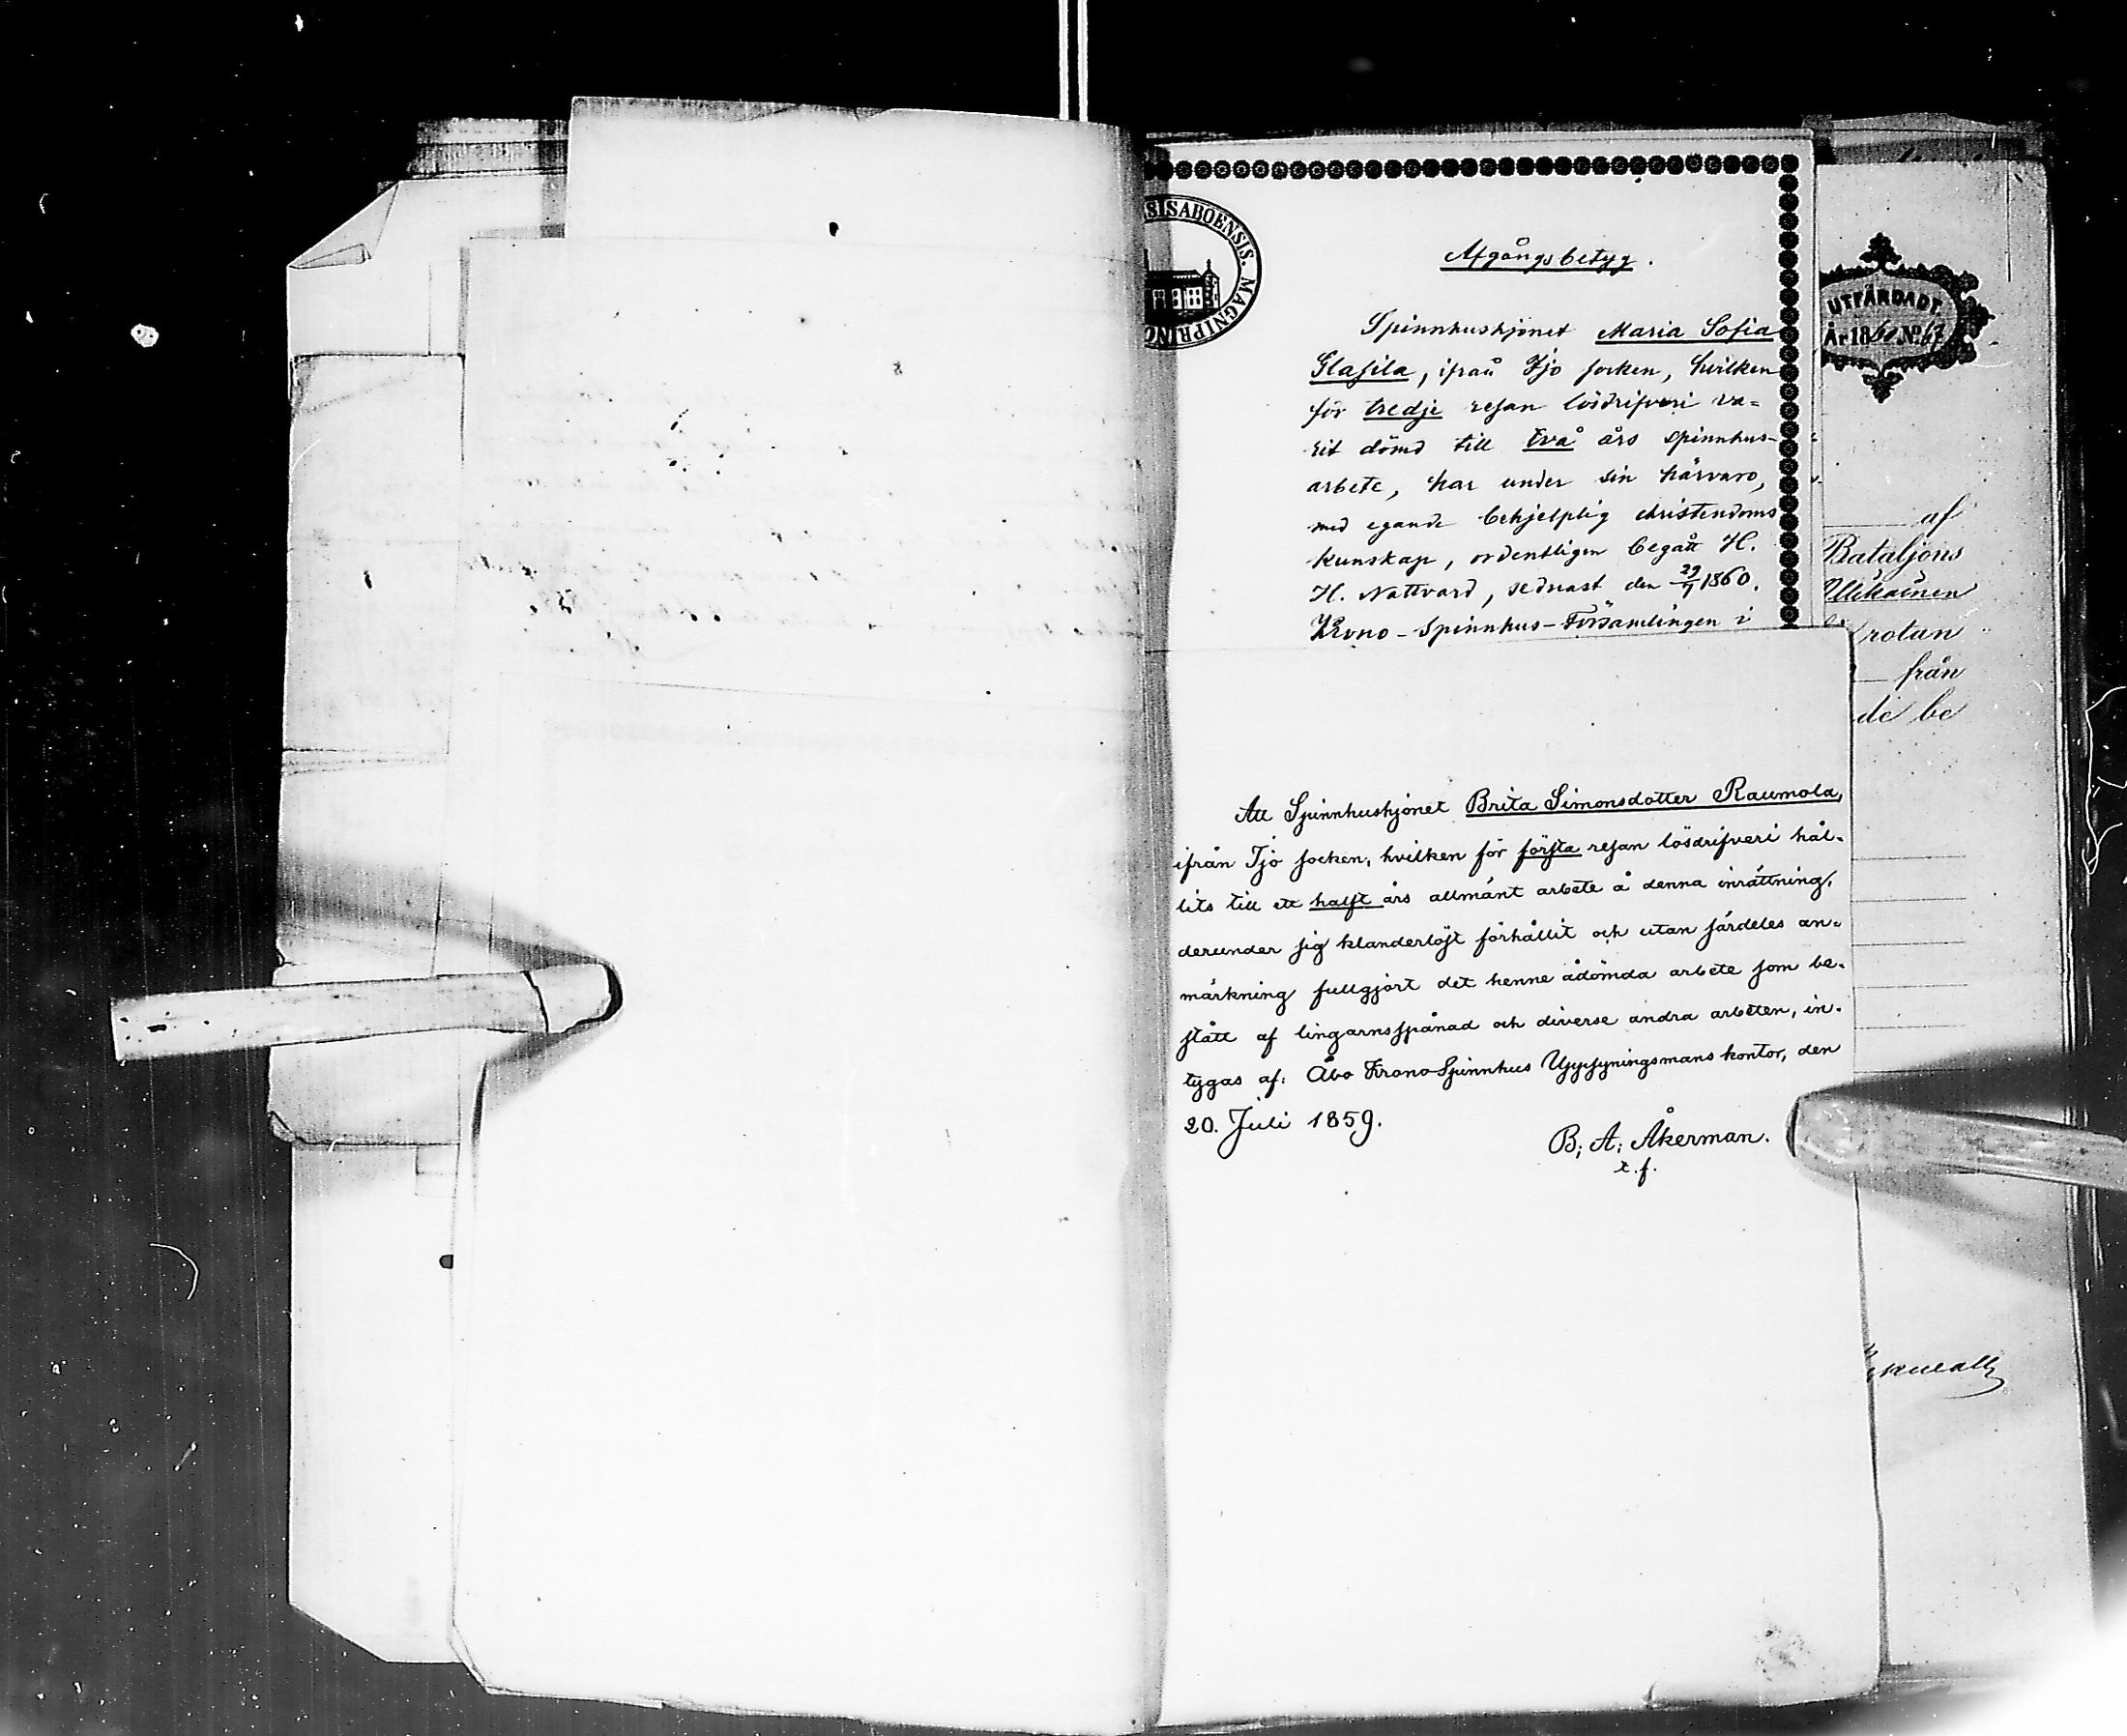 SISABOENSIS. MAGNIPRINC
Afgångsbetyg.
Spinnhushjonet Maria Sofia
Glasila, ifrån Ijo socken, hvilken
för tredje resan lösdrifveri va=
rit dömd till två års spinnhus-
arbete, har under sin härvaro,
med egande behjelplig christendoms
kunskap, ordentligen begått H.
H. Nattvard, sednast den 29/7 1860.
Krono-Spinnhus-Församlingen i
Att Spinnhushjonet Brita Simonsdotter Raumola,
ifrån Ijo socken, hvilken för första resan lösdrifveri hål-
lits till ett halft års allmänt arbete å denna inrättning,
derunder sig klanderlöst förhållit och utan särdeles an-
märkning fullgjort det henne ådömda arbete som be-
stått af lingarnsspånad och diverse andra arbeten, in-
tygas af: Åbo Krono Spinnhus Uppsyningsmans kontor, den
20. Juli 1859.
B; A; Åkerman.
t.f.
UTFÄRDADT.
År 1860 No 67
af
Bataljons
rotan
från
de be